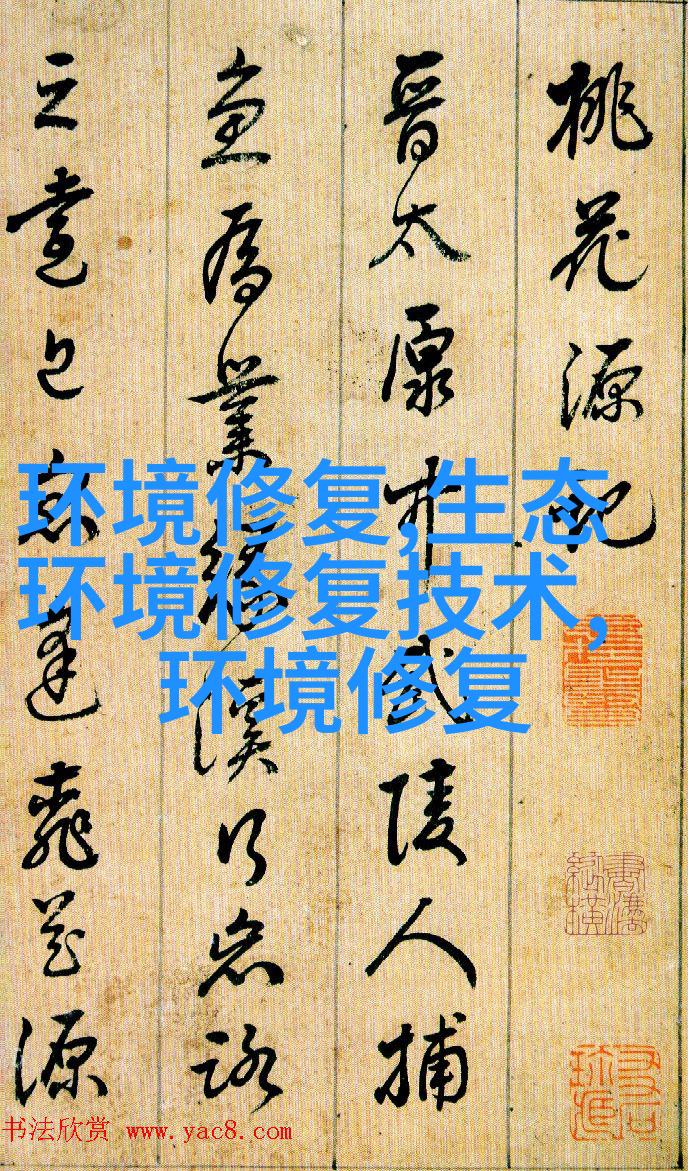 桃花源記
晉太原中武陵人捕
魚為業緣溪行忘路
之近忽逢花源
环境修复,生态
环境修复技术,
环境修复
书法欣赏 www.yac8.com